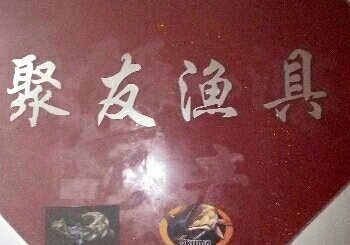 聚友渔具
okuma